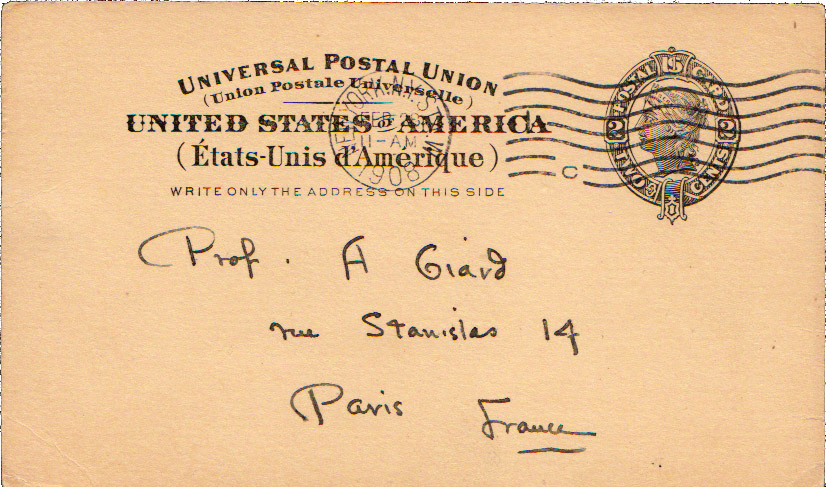 UNIVERSAL POSTAL UNION
(Union Postale Universelle)
UNITED STATES OF AMERICA
(États-Unis d'Amérique)
WRITE ONLY THE ADDRESS ON THIS SIDE
NEW YORK, N.Y. STA
FEB 28
11-AM
1908
C
POSTAL CARD
2 2
Prof. A Giard
rue Stanislas 14
Paris France